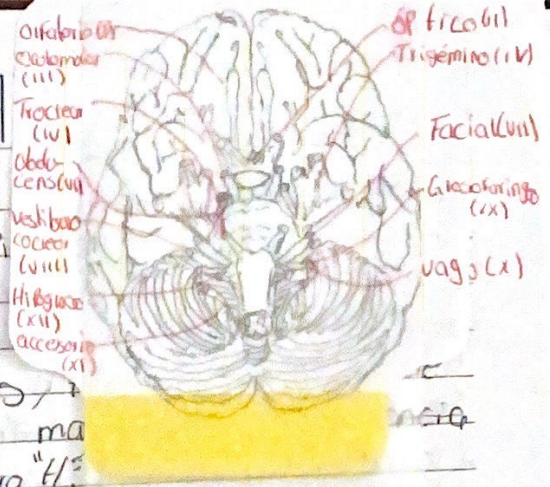 olfatorio (I)
Oculomotor
(III)
Troclear
(IV)
abdu-
cens (VI)
Vestibulo
coclear
(VIII)
Hipogloso
(XII)
accesorio
(XI)
óptico (II)
Trigémino (IV)
Facial (VII)
Glosofaringeo
(IX)
vago (X)
ma